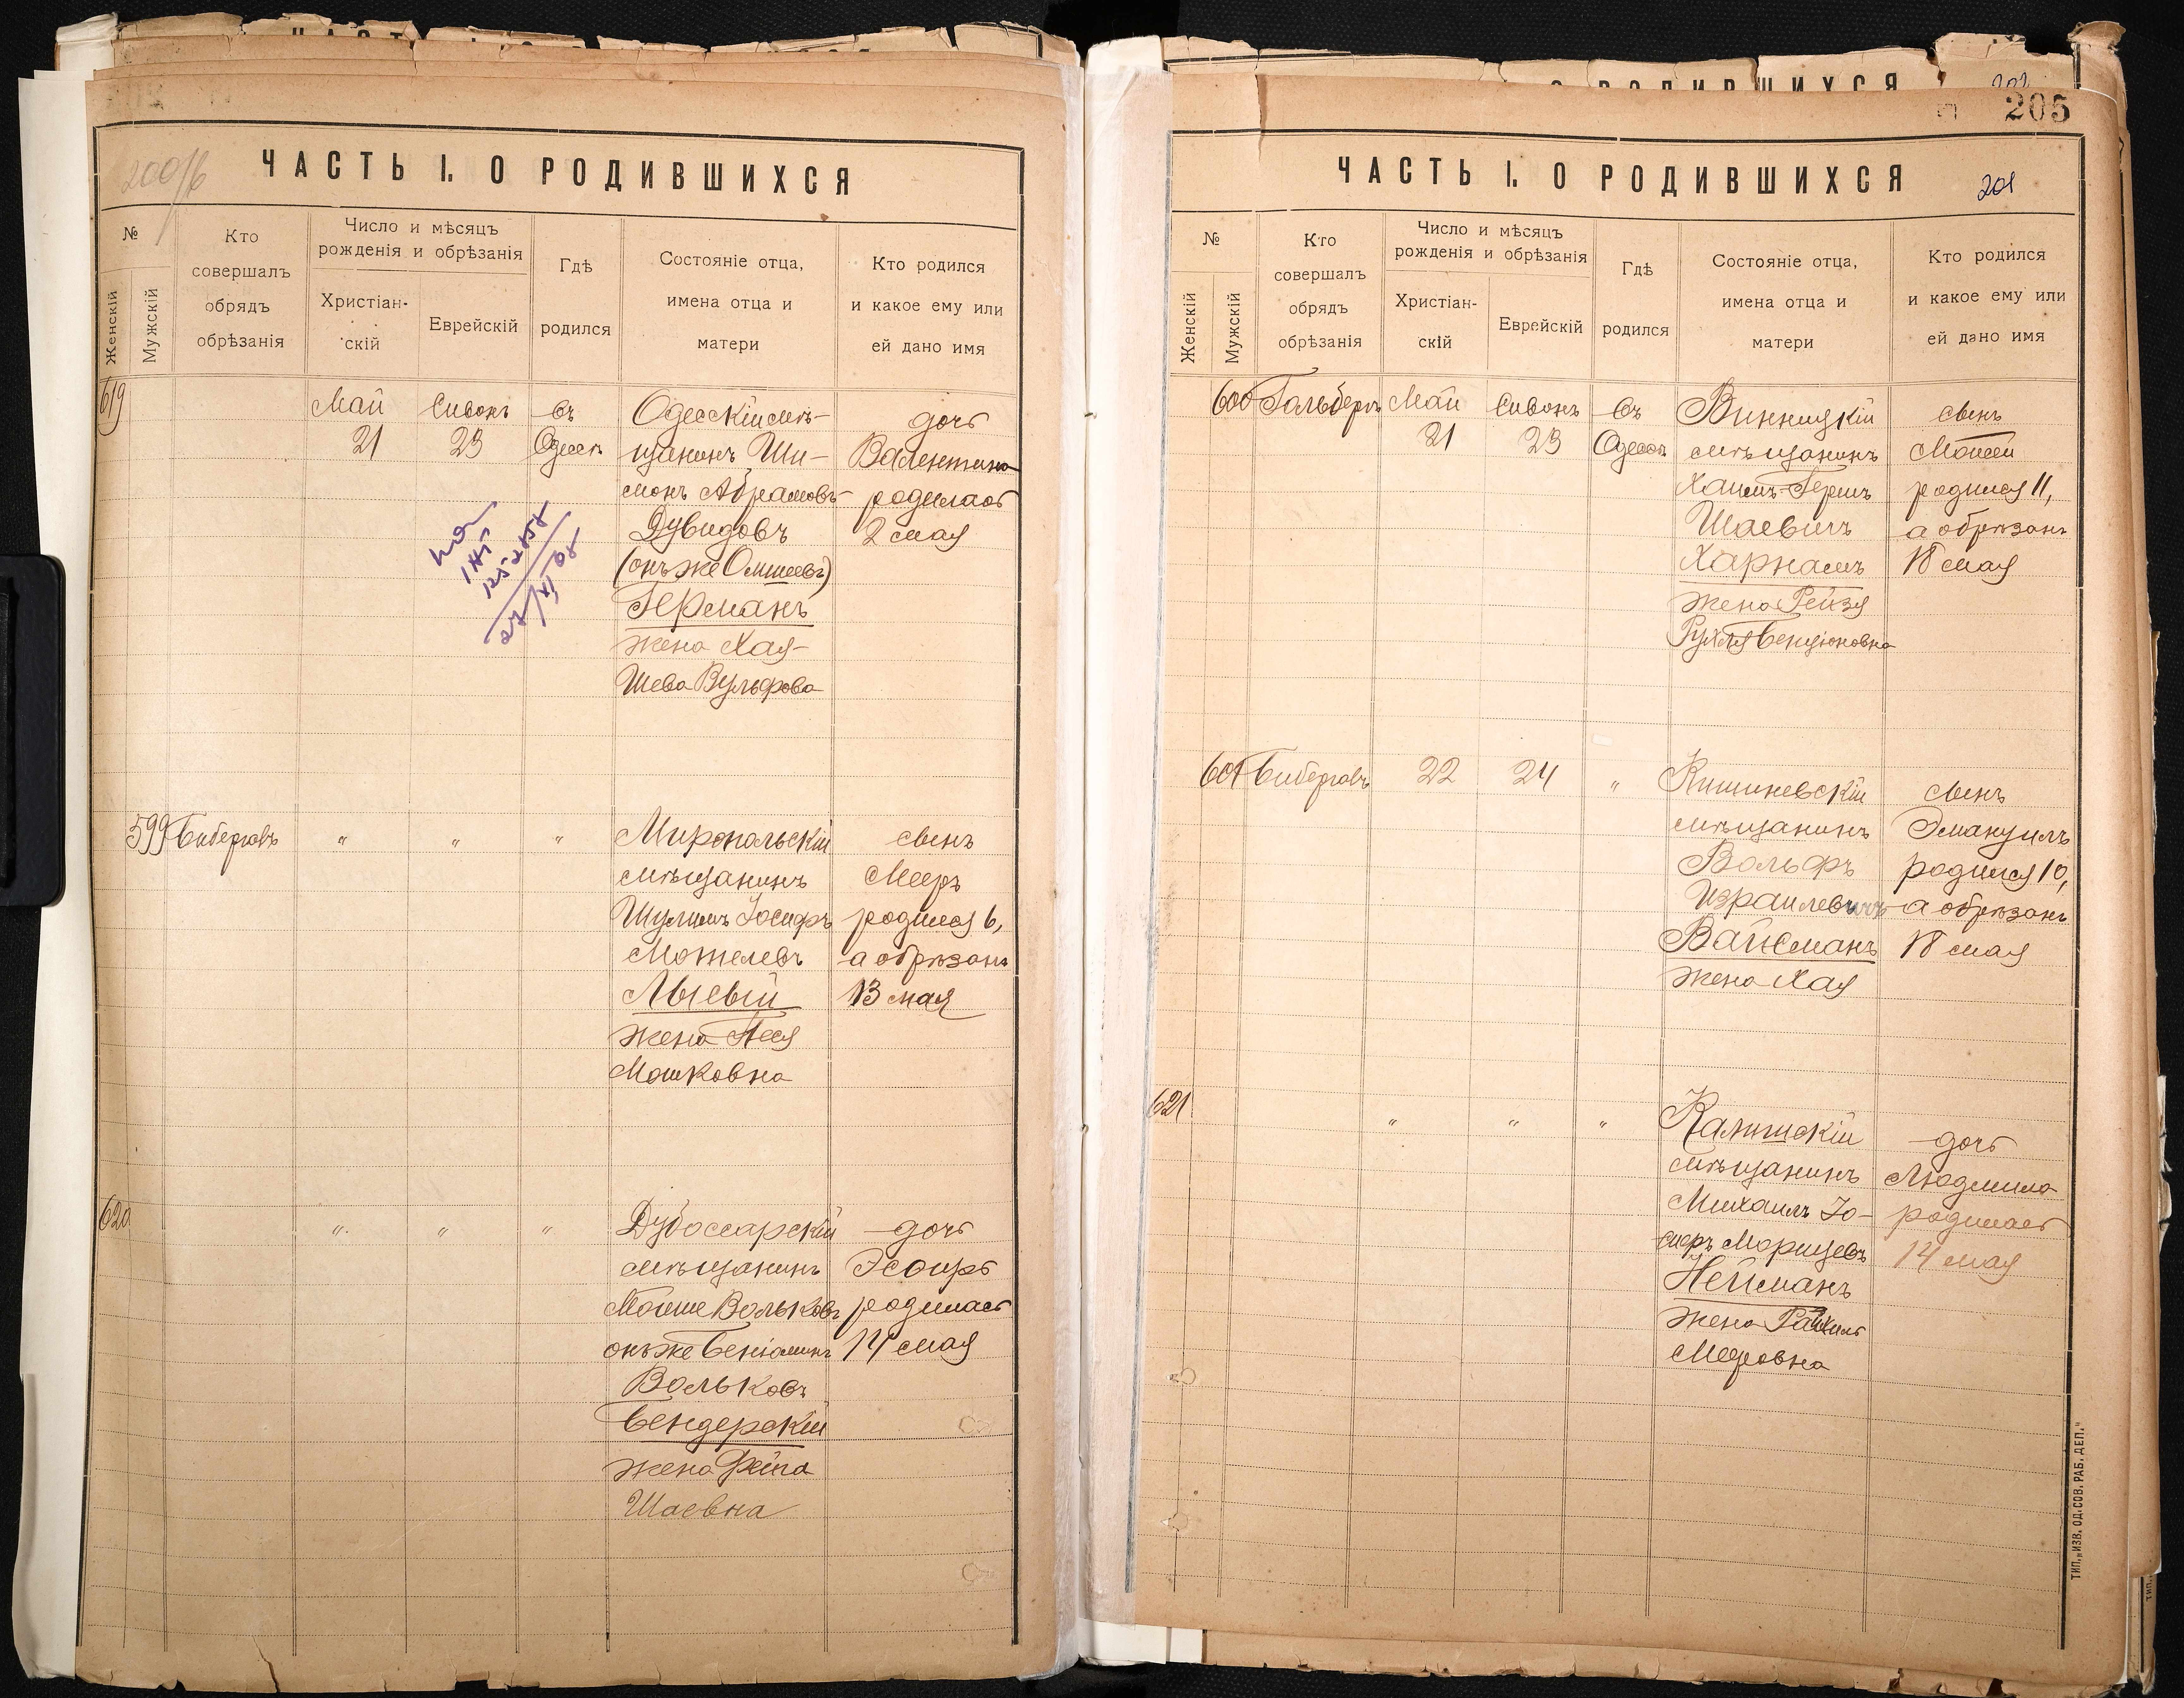 200/б
ЧАСТЬ I. О РОДИВШИХСЯ
№
Женскій
Мужскій
Кто
совершалъ
обрядъ
обрѣзанія
Число и мѣсяцъ
рожденія и обрѣзанія
Христіан-
скій
Еврейскій
Гдѣ
родился
Состояніе отца,
имена отца и
матери
Кто родился
и какое ему или
ей дано имя
619
Май
21
Сивонъ
23
въ
Одессѣ
Одесскій мѣ-
щанинъ Ши-
монъ Абрамовъ-
Дувидовъ
(онъ же Ошшеевъ)
Германъ
жена Хая-
Шева Вульфова
дочь
Валентина
родилась
2 мая
599
Биберговъ
"
"
"
Миропольскій
мѣщанинъ
Шулимъ Іосифъ
Мошелевъ
Лысый
жена Песя
Мошковна
сынъ
Мееръ
родился 6,
а обрѣзанъ
13 мая
620
"
"
"
Дубоссарскій
мѣщанинъ
Мойше Вольковъ
онъ же Беніаминъ
Вольковъ
Бендерскій
жена Фейга
Шаевна
дочь
Эсѳирь
родилась
14 мая
205
ЧАСТЬ I. О РОДИВШИХСЯ
201
№
Женскій
Мужскій
Кто
совершалъ
обрядъ
обрѣзанія
Число и мѣсяцъ
рожденія и обрѣзанія
Христіан-
скій
Еврейскій
Гдѣ
родился
Состояніе отца,
имена отца и
матери
Кто родился
и какое ему или
ей дано имя
600
Гальберъ
Май
21
Сивонъ
23
въ
Одессѣ
Винницкій
мѣщанинъ
Хаимъ-Гершъ
Шаевичъ
Харнамъ
жена Рейзя
Рухля Бенціоновна
сынъ
Моисей
родился 11,
а обрѣзанъ
18 мая
601
Биберговъ
22
24
"
Кишиневскій
мѣщанинъ
Вольфъ
Израилевичъ
Вайсманъ
жена Хая
сынъ
Эмануилъ
родился 10,
а обрѣзанъ
18 мая
621
"
"
"
Калишскій
мѣщанинъ
Михаилъ Іо-
сифъ Морицевъ
Нейманъ
жена Рахиль
Мееровна
дочь
Людмила
родилась
14 мая
ТИП. „ИЗВ. ОД. СОВ. РАБ. ДЕП."